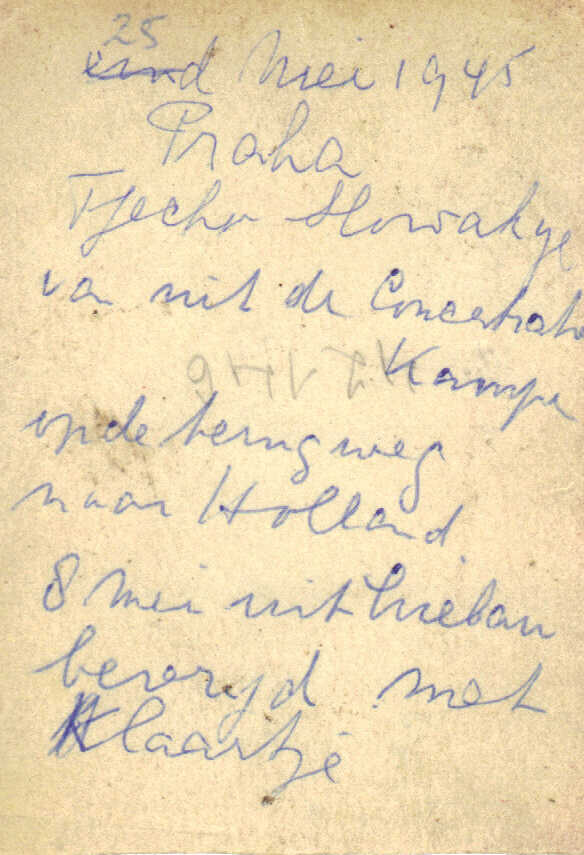 25
eind Mei 1945
Praha
Tjecho Slowakye
van uit de Concentratie
Kampe
op de terug weg
naar Holland.
8 Mei uit Lieban
bevryd met
Klaartje